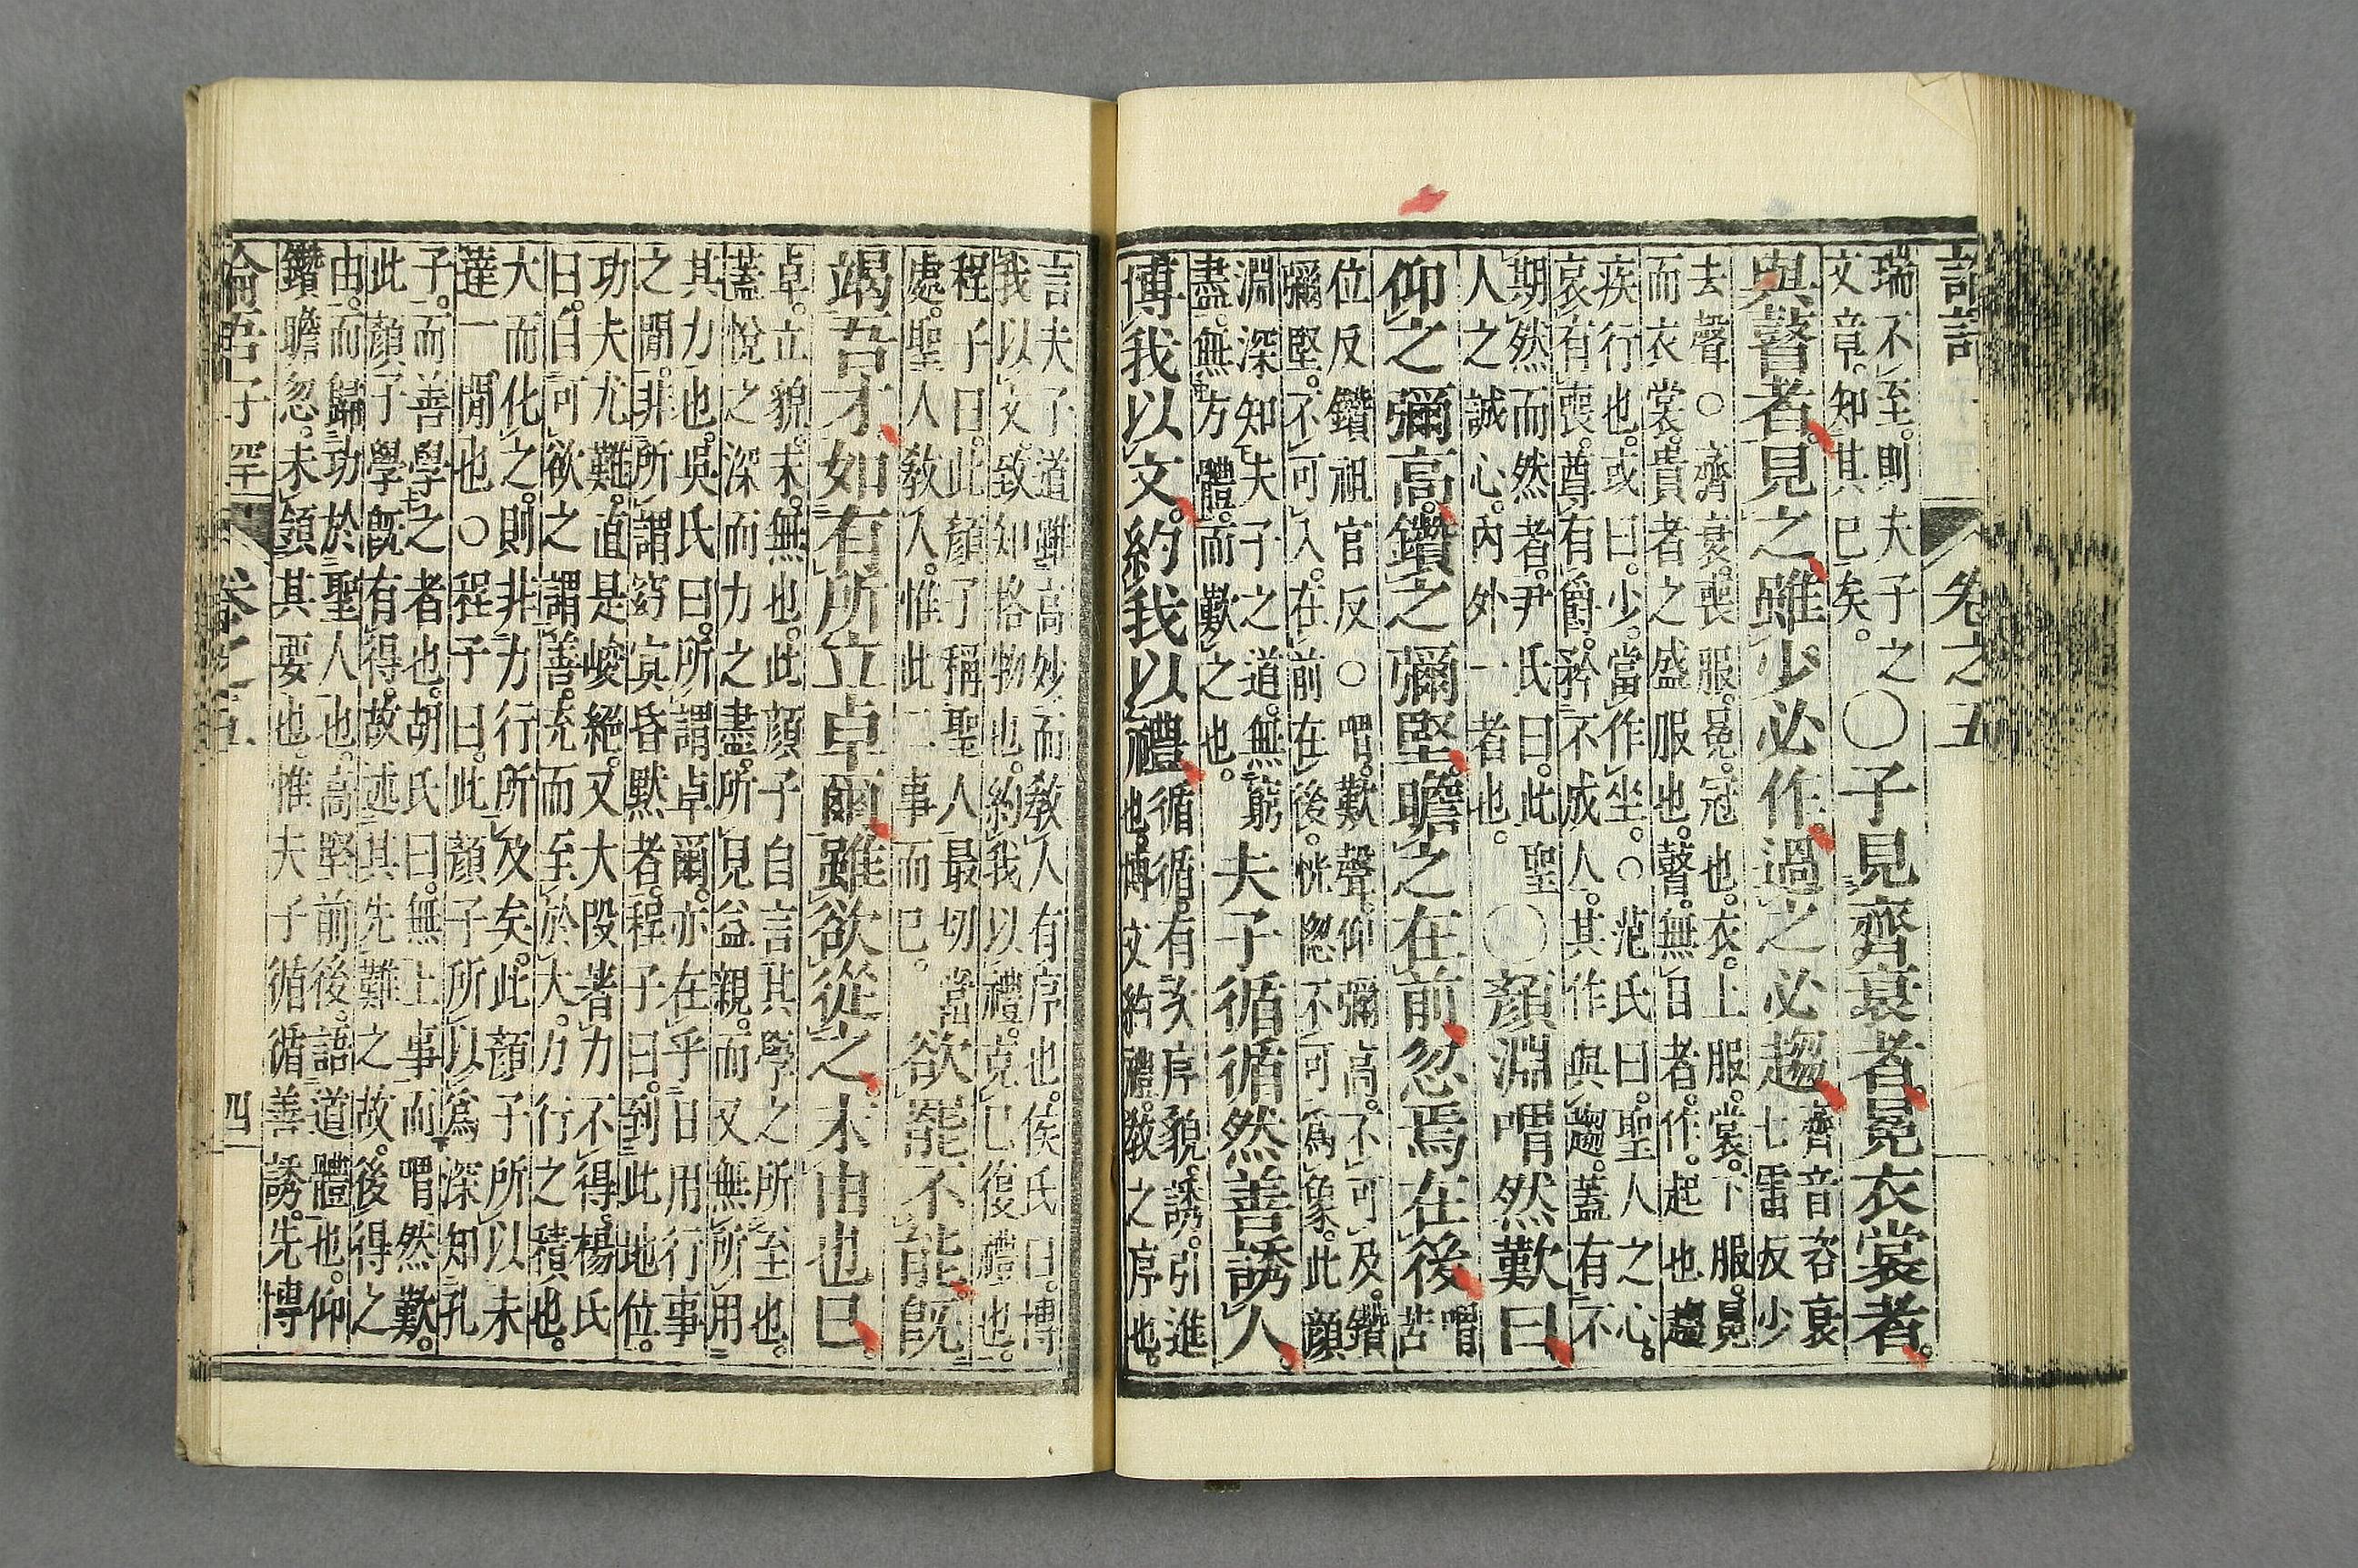 論語 卷之五
瑞不至。則夫子之
文章。知其已矣。
〇子見齊衰者。冕衣裳者。
與瞽者。見之。雖少必作。過之必趨
齊音咨衰
七雷反少
去聲○齊衰。喪服。冕。冠也。衣。上服。裳。下服。冕
而衣裳。貴者之盛服也。瞽。無目者。作。起也趨
疾行也。或曰。少。當作坐。○范氏曰。聖人之心。
哀有喪。尊有爵。矜不成人。其作與趨。蓋有不
期然而然者。尹氏曰。此聖
人之誠心。內外一者也。
〇顏淵喟然歎曰
仰之彌高。鑽之彌堅。瞻之在前忽焉在後
喟
苦
位反鑽祖官反○喟。歎聲。仰彌高。不可及。鑽
彌堅。不可入。在前在後。恍惚不可爲象。此顏
淵深知夫子之道。無窮
盡。無方體。而歎之也。
夫子循循然善誘人。
博我以文。約我以禮
循循。有次序貌。誘。引進
也。博文約禮。教之序也。
言夫子道雖高妙。而教人有序也。侯氏曰。博
我以文。致知格物也。約我以禮。克已復禮也。
程子曰。此顏子稱聖人最切當
處。聖人教人。惟此二事而已。
欲罷不能。既
竭吾才。如有所立卓爾。雖欲從之。末由也已。
卓。立貌。末。無也。此顏子自言其學之所至也。
蓋悅之深而力之盡。所見益親。而又無所用
其力也。吳氏曰。所謂卓爾。亦在乎日用行事
之閒。非所謂窈冥昏默者。程子曰。到此地位。
功夫尤難。直是峻絕。又大段著力不得。楊氏
曰。自可欲之謂善。充而至於大。力行之積也。
大而化之。則非力行所及矣。此顏子所以未
達一閒也○程子曰。此顏子所以爲深知孔
子。而善學之者也。胡氏曰。無上事而喟然歎。
此顏子學既有得。故述其先難之故。後得之
由。而歸功於聖人也。高堅前後。語道體也。仰
鑽瞻忽。未領其要也。惟夫子循循善誘。先博
論語子罕 卷之五 四